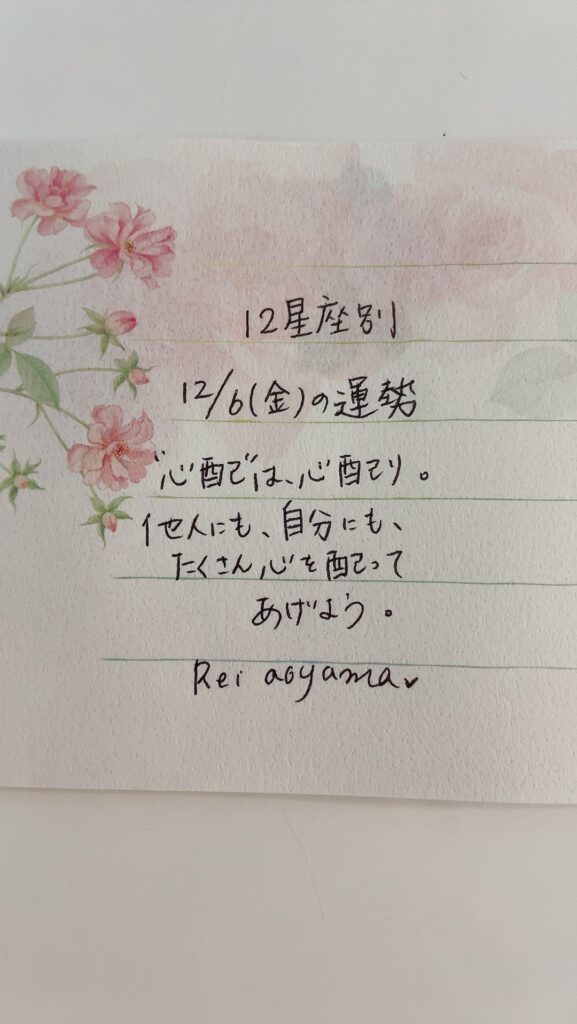 12星座別
12/6(金)の運勢
"心配"は、心配り。
他人にも、自分にも、
たくさん心を配って
あげよう。
Rei aoyama♥